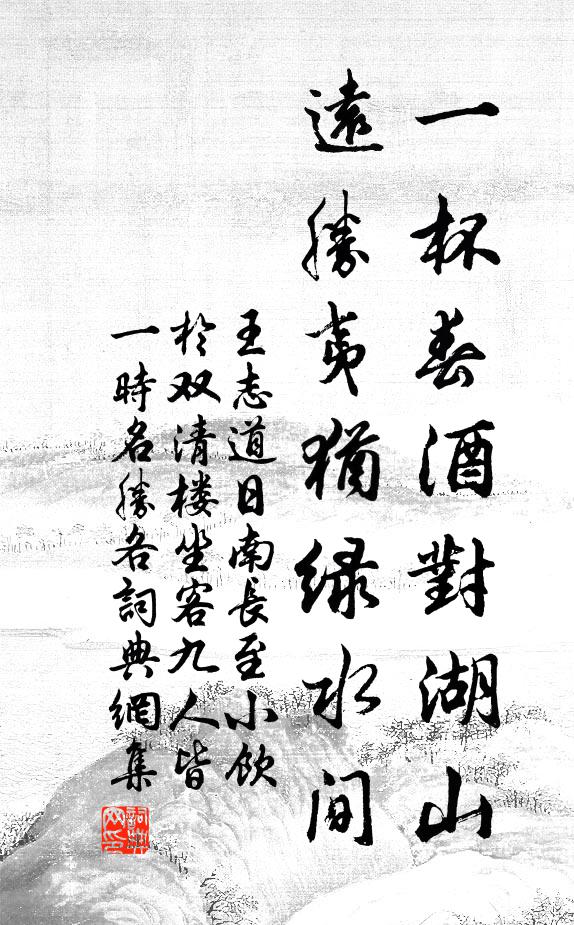 一杯春酒對湖山
遠勝夷猶绿水间
王志道日南長至小飲
於双清楼坐客九人皆
一時名勝各詞典網集
詞典网印